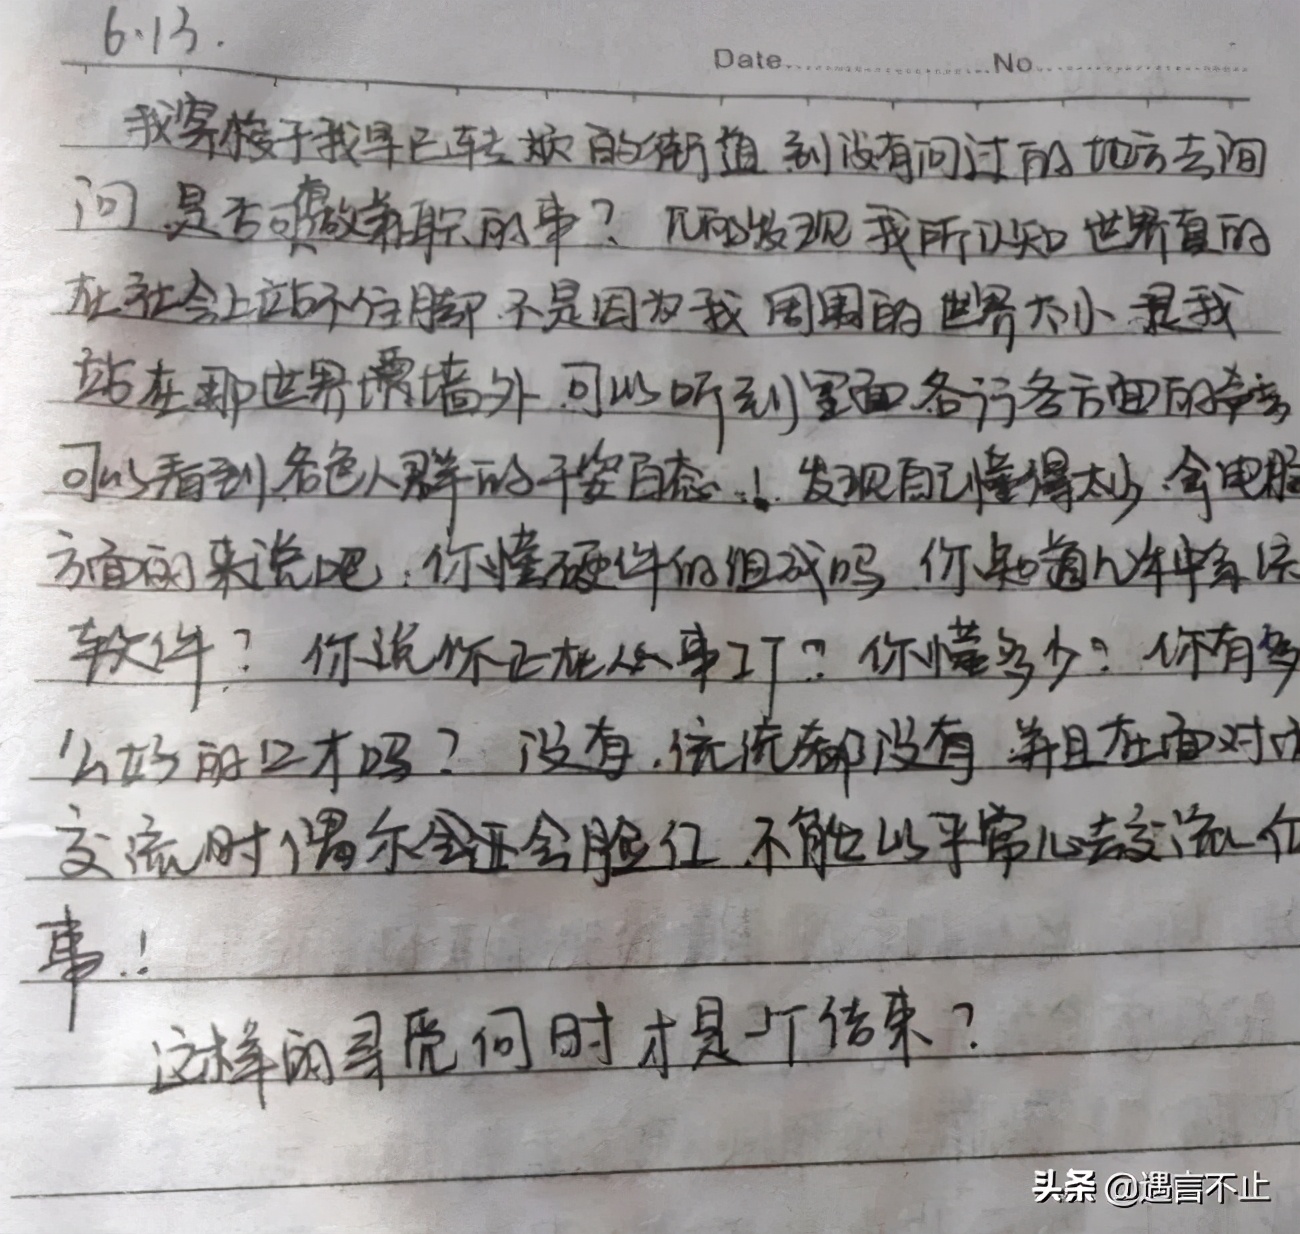 6.13.
Date No
我穿梭于我早已转 的街道 到没有问过的地方去问
问 是否可 做兼职的事? 发现 我所认知世界真的
在社会上站不住脚 不是因为我 周围的世界太小 是我
站在那世界 墙外 可以听到里面各行各方面的
可以看到各色人群的千姿百态..! 发现自己懂得太少.拿电脑
方面的来说吧.你懂硬件的组成吗 你知道几
软件? 你说你正在从事IT? 你懂多少? 你有多
么好的口才吗? 没有.统统都没有 并且在面对
交流时偶尔会还会脸红 不能以平常心去交流
事!
这样的寻觅何时才是个结果?
头条 @遇言不止